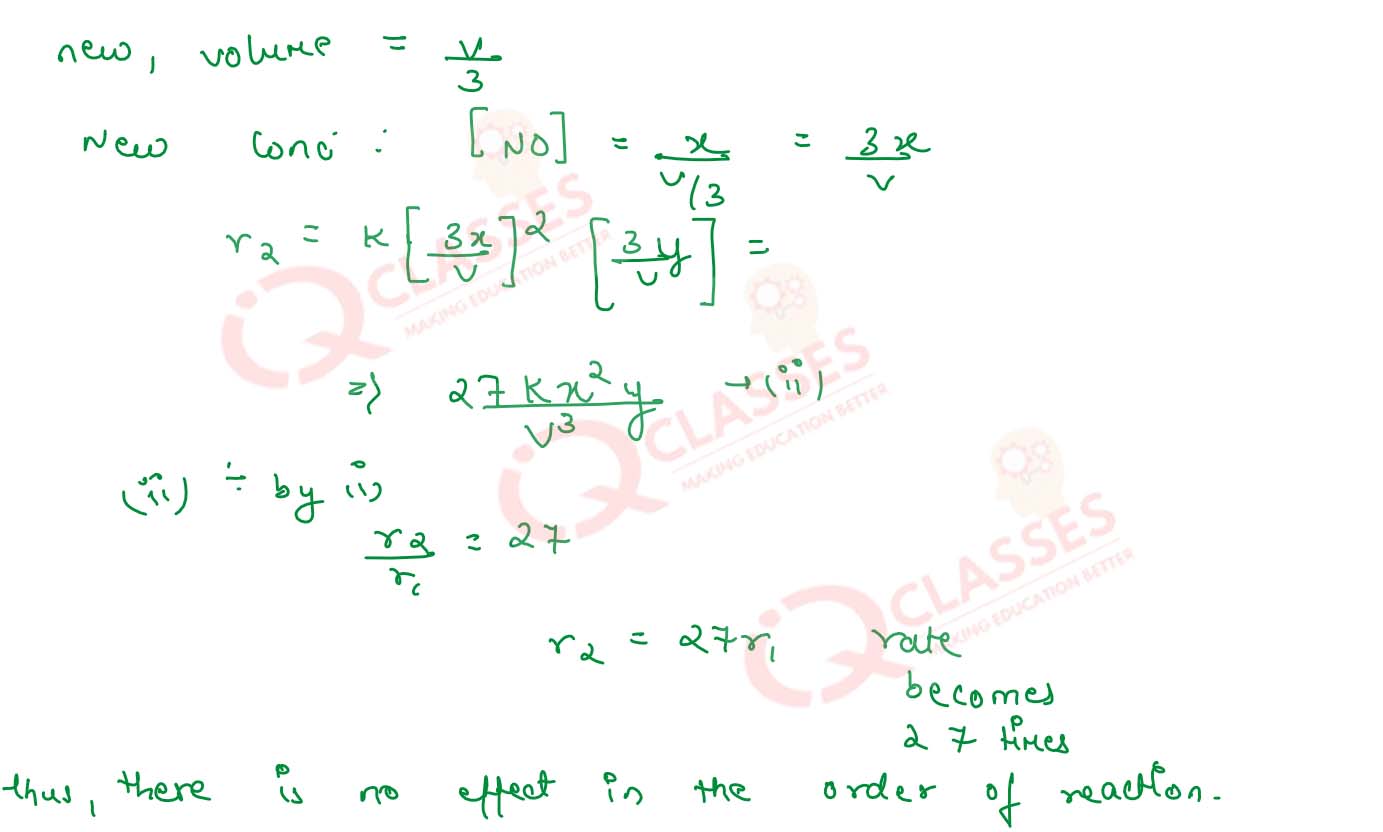 new, volume = V/3
New Conc : [NO] = x/(V/3) = 3x/V
r₂ = K[3x/V]² [3/V y] =
⇒ 27Kx²y/V³ → (ii)
(ii) ÷ by (i)
r₂/r₁ = 27
r₂ = 27r₁ rate
becomes
27 times
thus, there is no effect in the order of reaction.
iQ CLASSES
MAKING EDUCATION BETTER
iQ CLASSES
MAKING EDUCATION BETTER
iQ CLASSES
MAKING EDUCATION BETTER